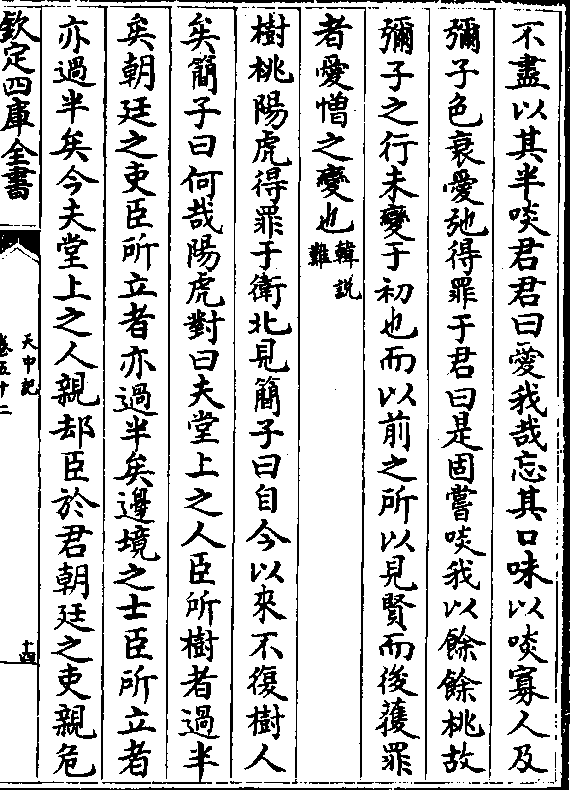 不盡以其半啖君君曰愛我哉忘其口味以啖寡人及
彌子色衰愛弛得罪于君曰是固嘗啖我以餘餘桃故
彌子之行未變于初也而以前之所以見賢而後蒦罪
者愛憎之變也韓說難
樹桃陽虎得罪于衛北見簡子曰自今以來不復樹人
矣簡子曰何哉陽虎對曰夫堂上之人臣所樹者過半
矣朝廷之吏臣所立者亦過半矣邊境之士臣所立者
亦過半矣今夫堂上之人親却臣於君朝廷之吏親危
欽定四庫全書
天中記
卷五十二
十四